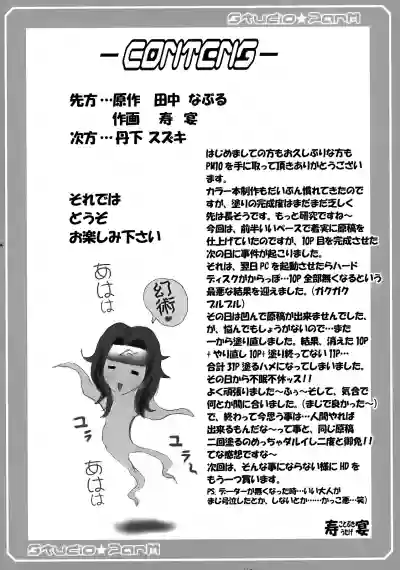 Studio★ParM
-CONTENS-
先方…原作 田中 なぷる
作画 寿 宴
次方…丹下 スズキ
それでは
どうぞ
お楽しみ下さい
はじめましての方もお久しぶりな方も
PM10を手に取って頂きありがとうござい
ます。
カラー本制作もだいぶん慣れてきたので
すが、塗りの完成度はまだまだ乏しく
先は長そうです。もっと研究ですね～
今回は、前半いいペースで着実に原稿を
仕上げていたのですが、10P目を完成させた
次の日に事件が起こりました。
それは、翌日PCを起動させたらハード
ディスクがからっぽ…10P全部無くなるという
最悪な結果を迎えました。(ガクガク
ブルブル)
その日は凹んで原稿が出来ませんでした
が、悩んでもしょうがないので…また
一から塗り直しました。結果、消えた10P
+やり直し10P+塗り終ってない11P…
合計31P塗るハメになってしまいました。
その日から不眠不休ッス!!
よく頑張りました～ふぅ～そして、気合で
何とか間に合いました。(まじで良かった～)
で、終わって今思う事は…人間やれば
出来るもんだな～って事と、同じ原稿
二回塗るのめっちゃダルイし二度と御免!!
てな感想ですな～
次回は、そんな事にならない様にHDを
もう一つ買います。
PS.データーが無くなった時…いい大人が
まじ号泣したとか、しないとか……かっこ悪…笑)
寿 宴
ことぶき
うたげ
あはは
幻術
ユラ
ユラ
あはは
Studio★ParM